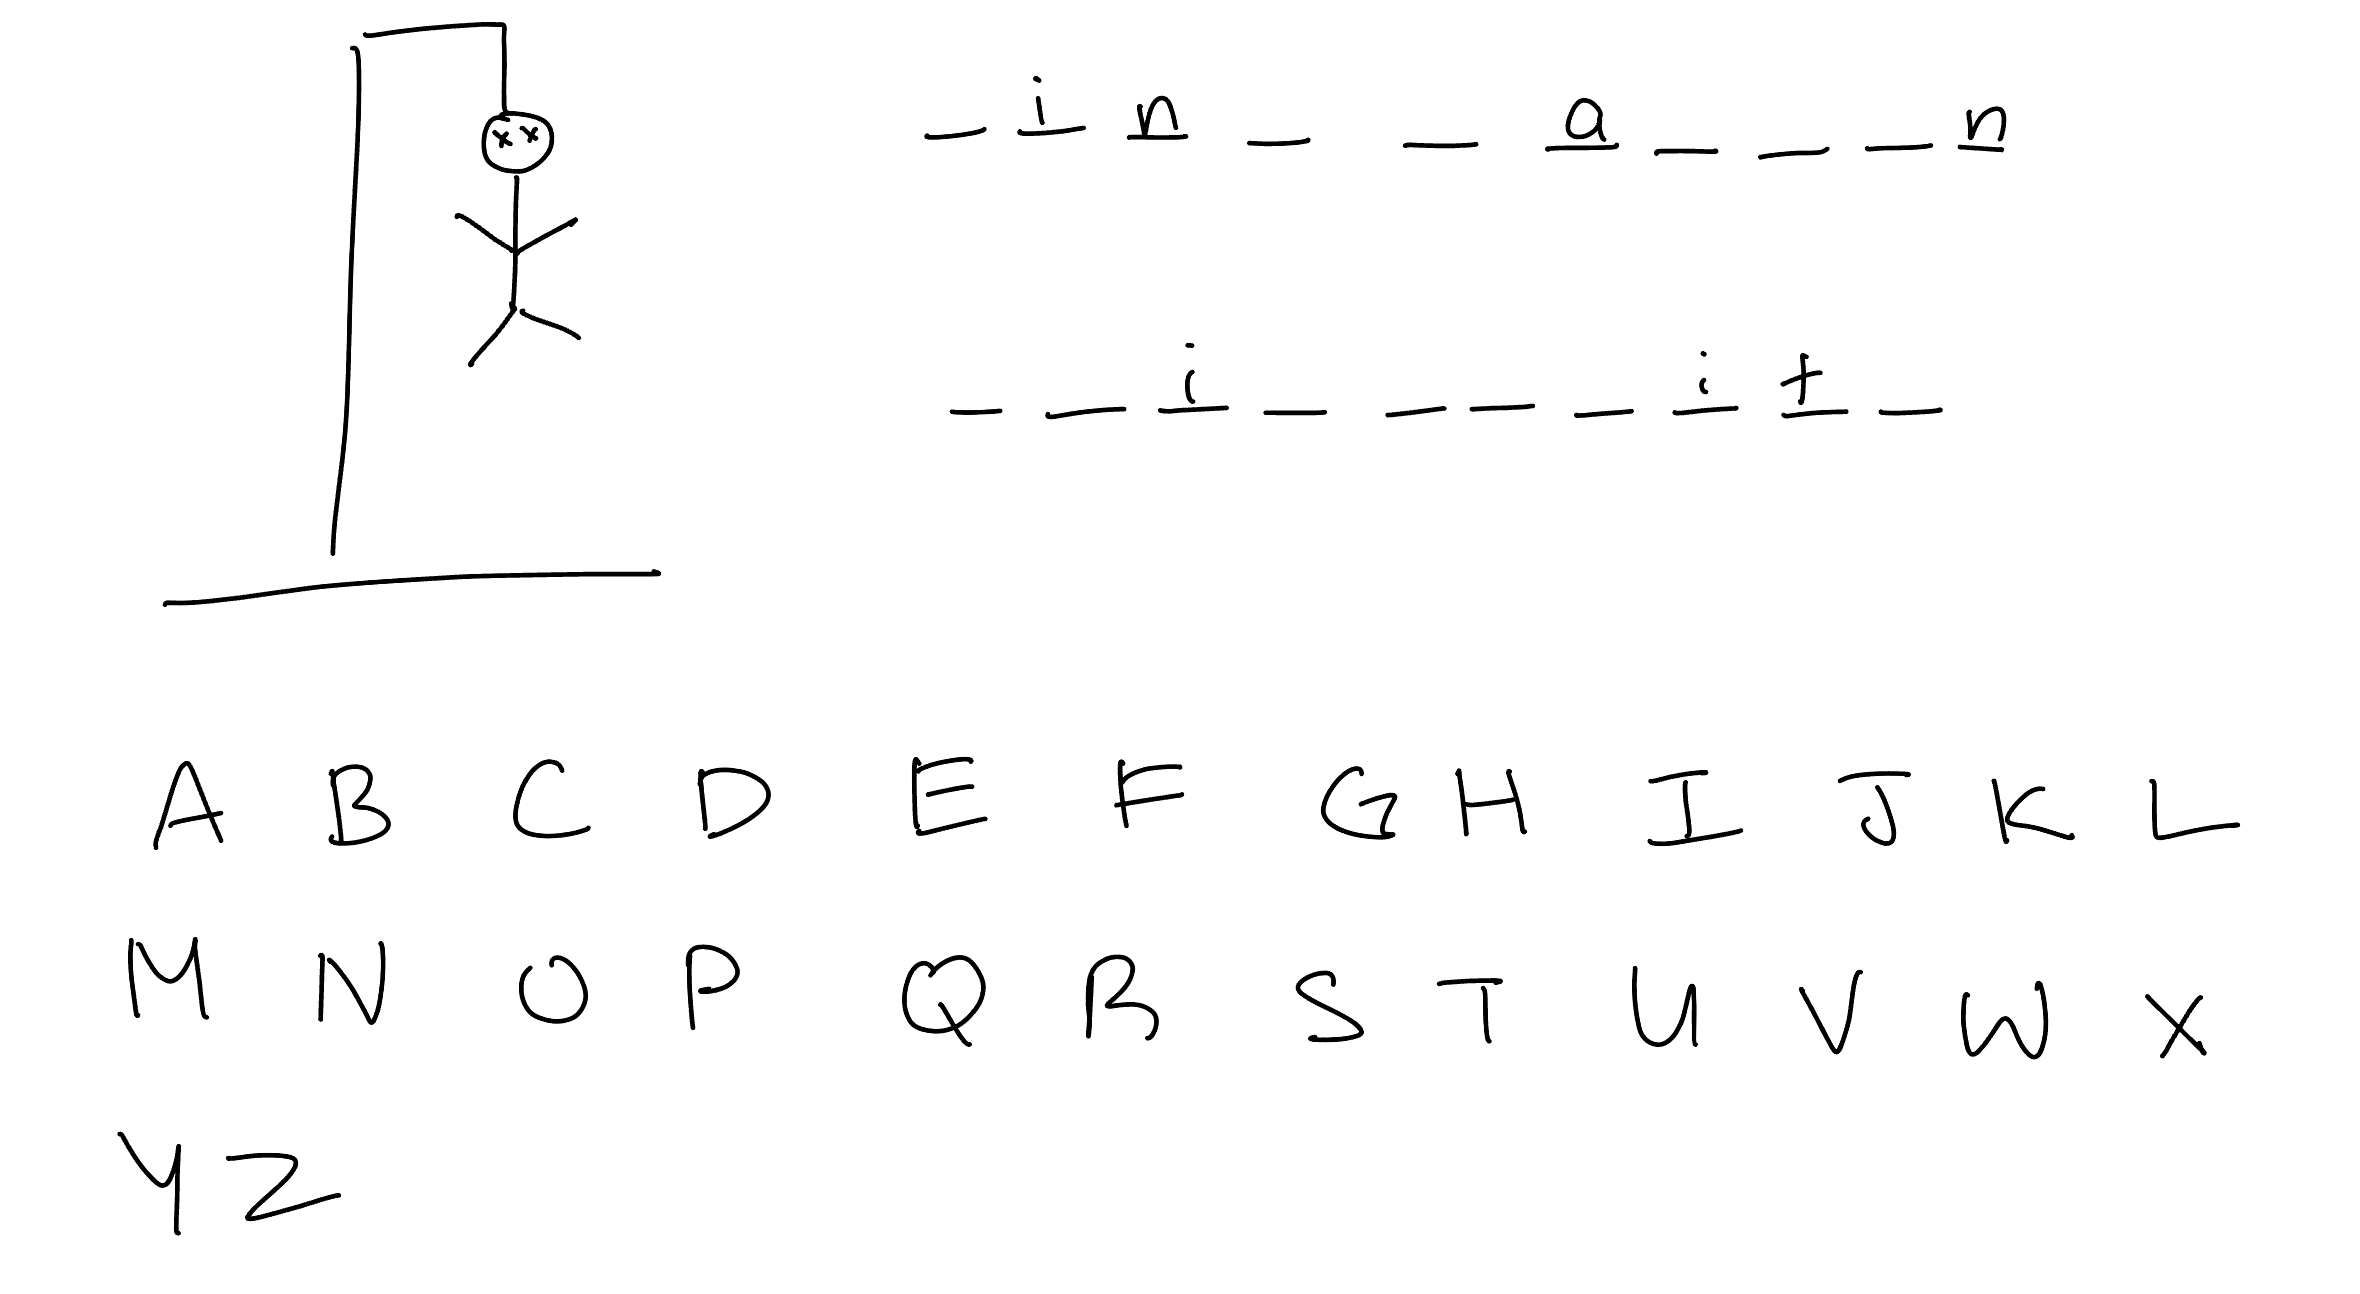 _ i n _ _ a _ _ _ n
_ _ i _ _ _ _ i t _
A B C D E F G H I J K L
M N O P Q R S T U V W X
Y Z